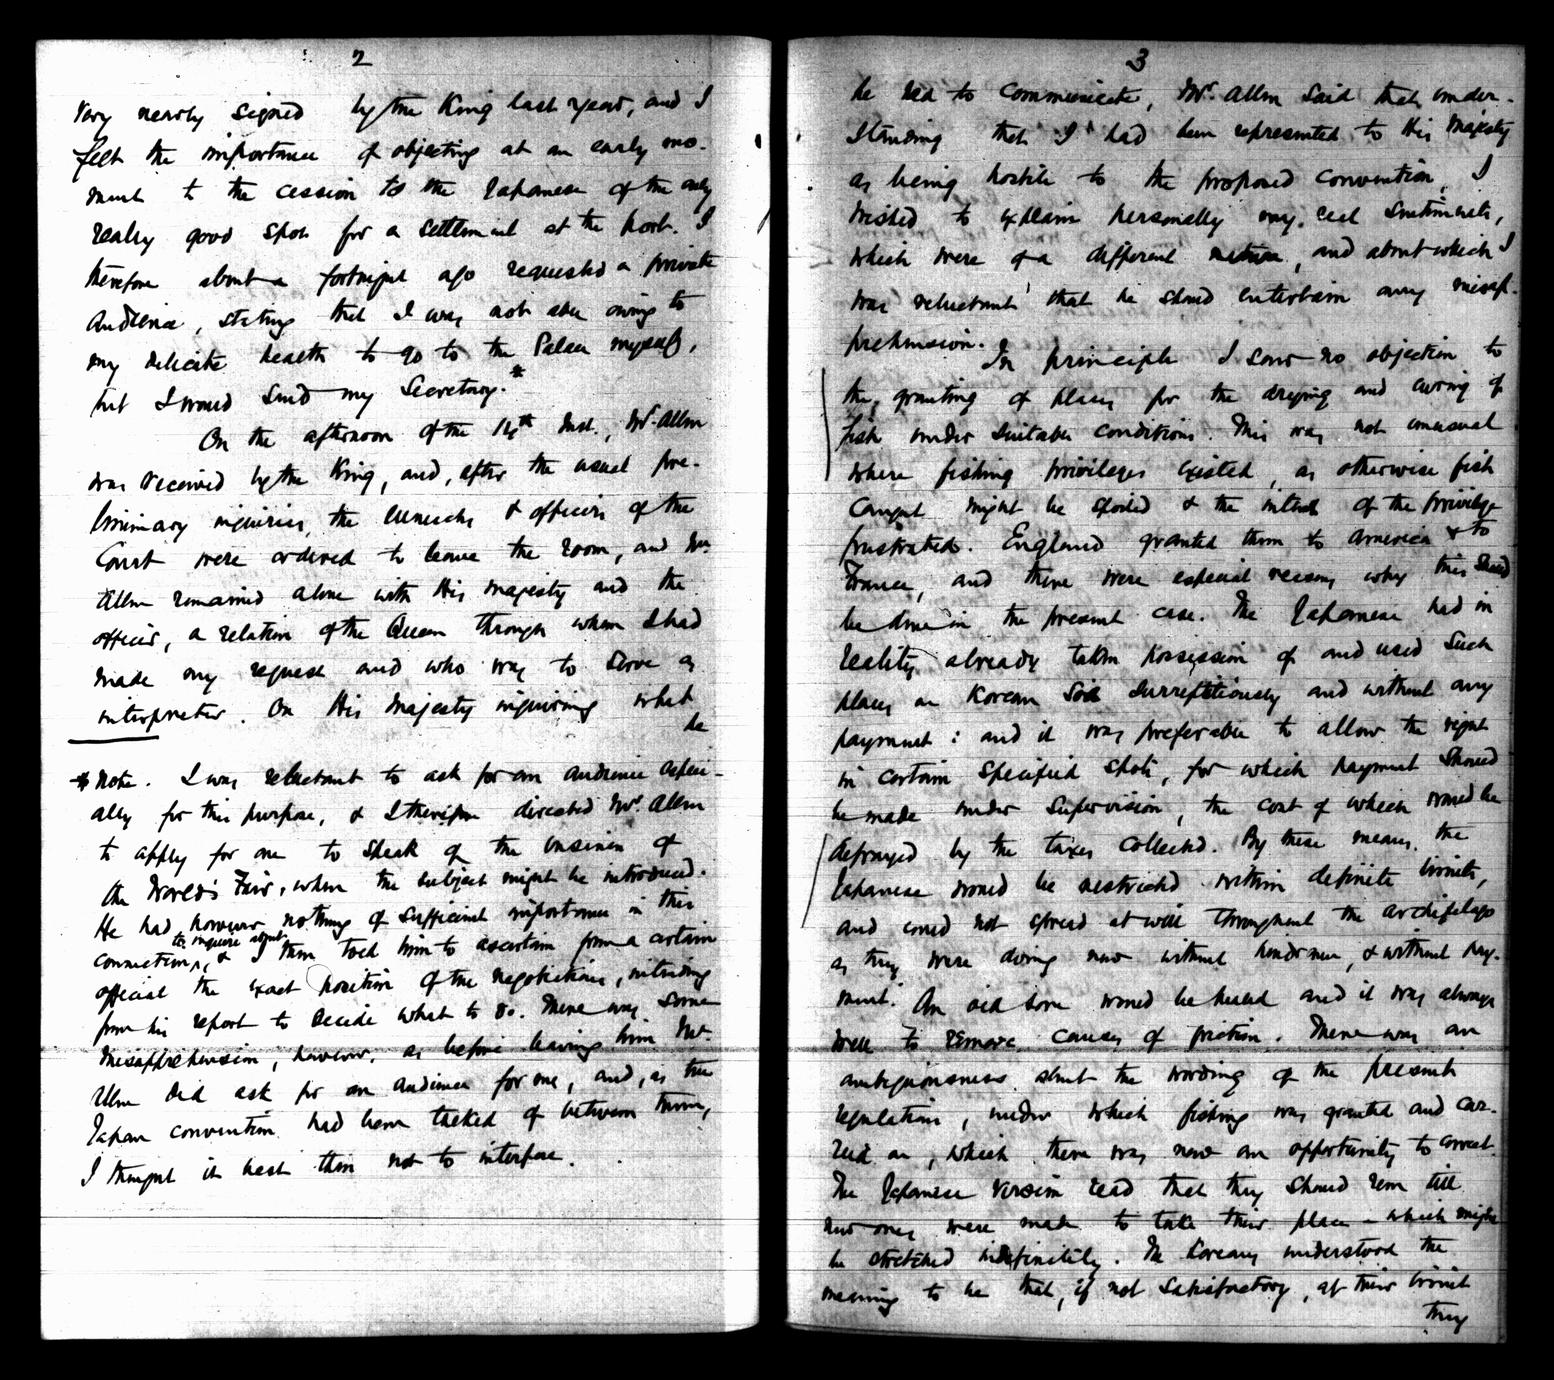 2
very nearly signed by the King last year, and I
felt the importance of objecting at an early mo-
ment to the cession to the Japanese of the only
really good spot for a settlement at the port. I
therefore about a fortnight ago requested a private
Audience, stating that I was not able owing to
my delicate health to go to the Palace myself,
but I would send my Secretary.*
On the afternoon of the 14th Inst., Mr. Allen
was received by the King, and, after the usual pre-
liminary inquiries, the Eunuchs & officers of the
Court were ordered to leave the room, and Mr.
Allen remained alone with His Majesty and the
officer, a relation of the Queen through whom I had
made my request and who was to serve as
interpreter. On His Majesty inquiring what
he
* Note. I was reluctant to ask for an audience especi-
ally for this purpose, & I therefore directed Mr. Allen
to apply for one to speak of the business of
the World's Fair, when the subject might be introduced.
He had however nothing of sufficient importance in this
connection, to inquire about, & I then told him to ascertain from a certain
official the exact position of the negotiations, intending
from his report to decide what to do. There was some
misapprehension, however, as before leaving him Mr.
Allen did ask for an audience for one, and, as the
Japan convention had been talked of between them,
I thought it best then not to interfere.
3
he had to communicate, Mr. Allen said that, under-
standing that I had been represented to His Majesty
as being hostile to the proposed convention, I
wished to explain personally my real sentiments,
which were of a different nature, and about which I
was reluctant that he should entertain any misap-
prehension.
In principle I saw no objection to
the granting of places for the drying and curing of
fish under suitable conditions. This was not unusual
where fishing privileges existed, as otherwise fish
caught might be spoiled & the intent of the privilege
frustrated. England granted them to America & to
France, and there were especial reasons why this should
be done in the present case. The Japanese had in
reality already taken possession of and used such
places on Korean soil surreptitiously and without any
payment: and it was preferable to allow the right
in certain specified spots, for which payment should
be made under supervision, the cost of which would be
defrayed by the taxes collected. By these means, the
Japanese would be restricted within definite limits,
and could not spread at will throughout the archipelago
as they were doing now without hindrance, & without pay-
ment. An old sore would be healed and it was always
well to remove causes of friction. There was an
ambiguousness about the wording of the present
regulations, under which fishing was granted and car-
ried on, which there was now an opportunity to correct.
The Japanese version read that they should run till
new ones were made to take their place - which might
be stretched indefinitely. The Koreans understood the
meaning to be that, if not satisfactory, at their limit
they